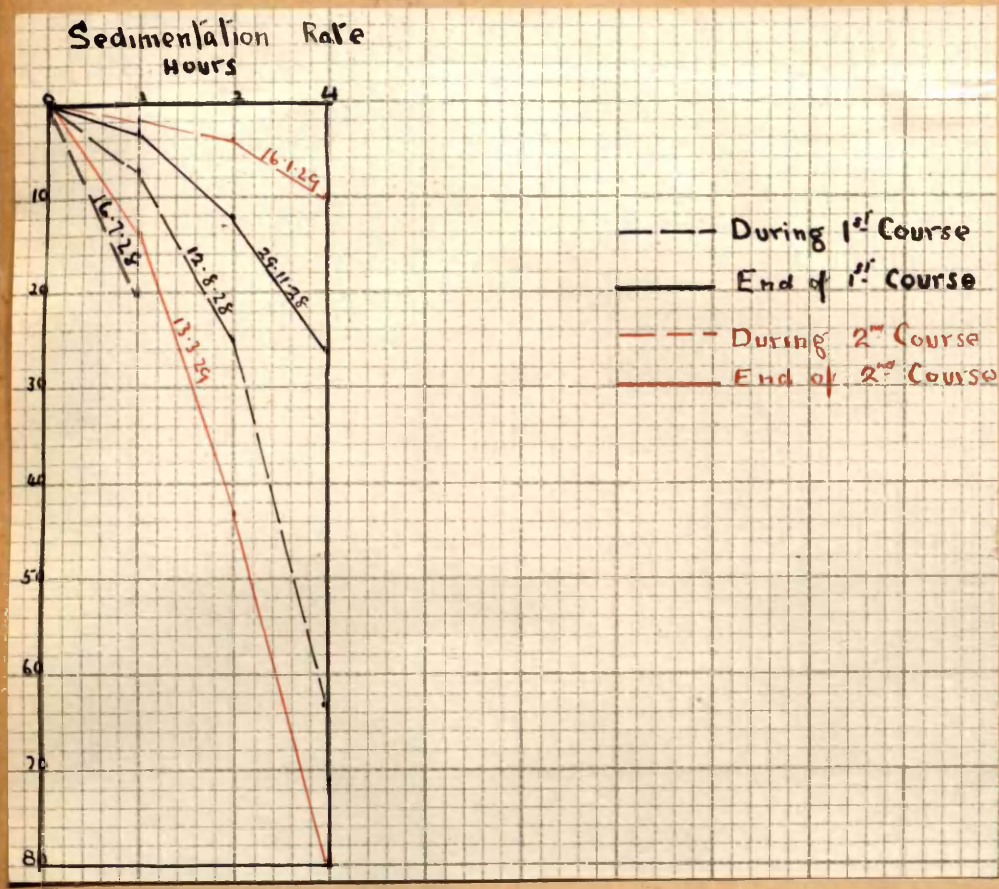 Sedimentation Rate
Hours
0 1 2 4
10
20
30
40
50
60
70
80
16.7.28
12.8.28
29.11.28
16.1.29
13.3.29
During 1st Course
End of 1st Course
During 2nd Course
End of 2nd Course